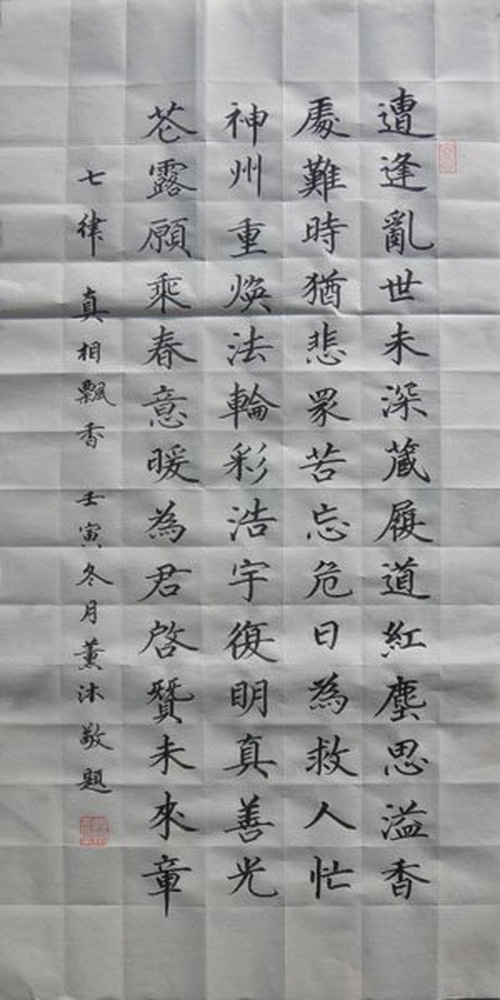 遭逢亂世未深蔵履道紅塵思溢香
處難時猶悲眾苦忘危日為救人忙
神州重煥法輪彩浩宇復明真善光
芒露願乘春意暖為君啓贊未來章
七律 真相飄香 壬寅冬月薰沐敬題